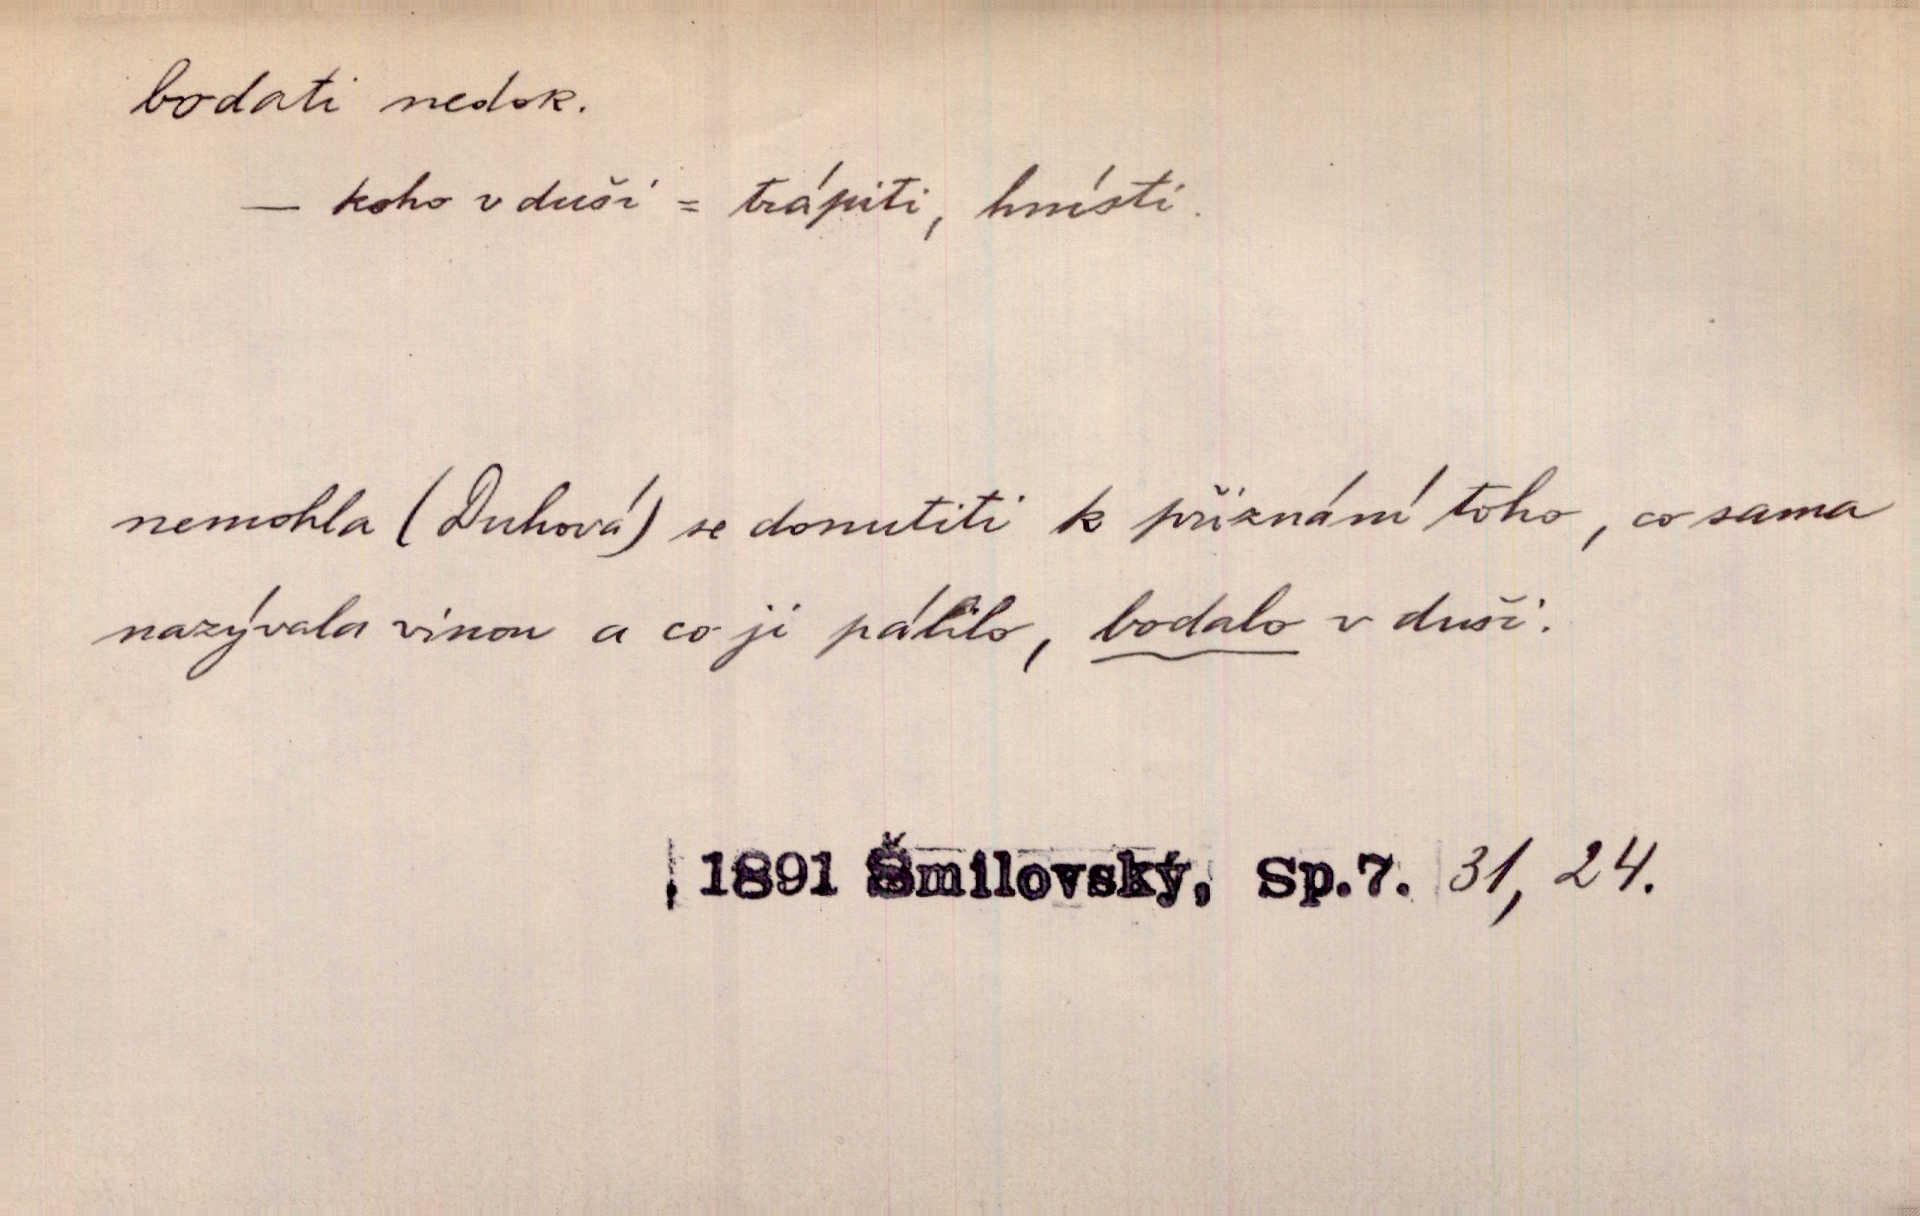 bodati nedok.
— koho v duši = trápiti, hnísti.
nemohla (Duhová) se donutiti k přiznání toho, co sama
nazývala vinou a co ji pálilo, bodalo v duši.
1891 Šmilovský, Sp.7. 31, 24.